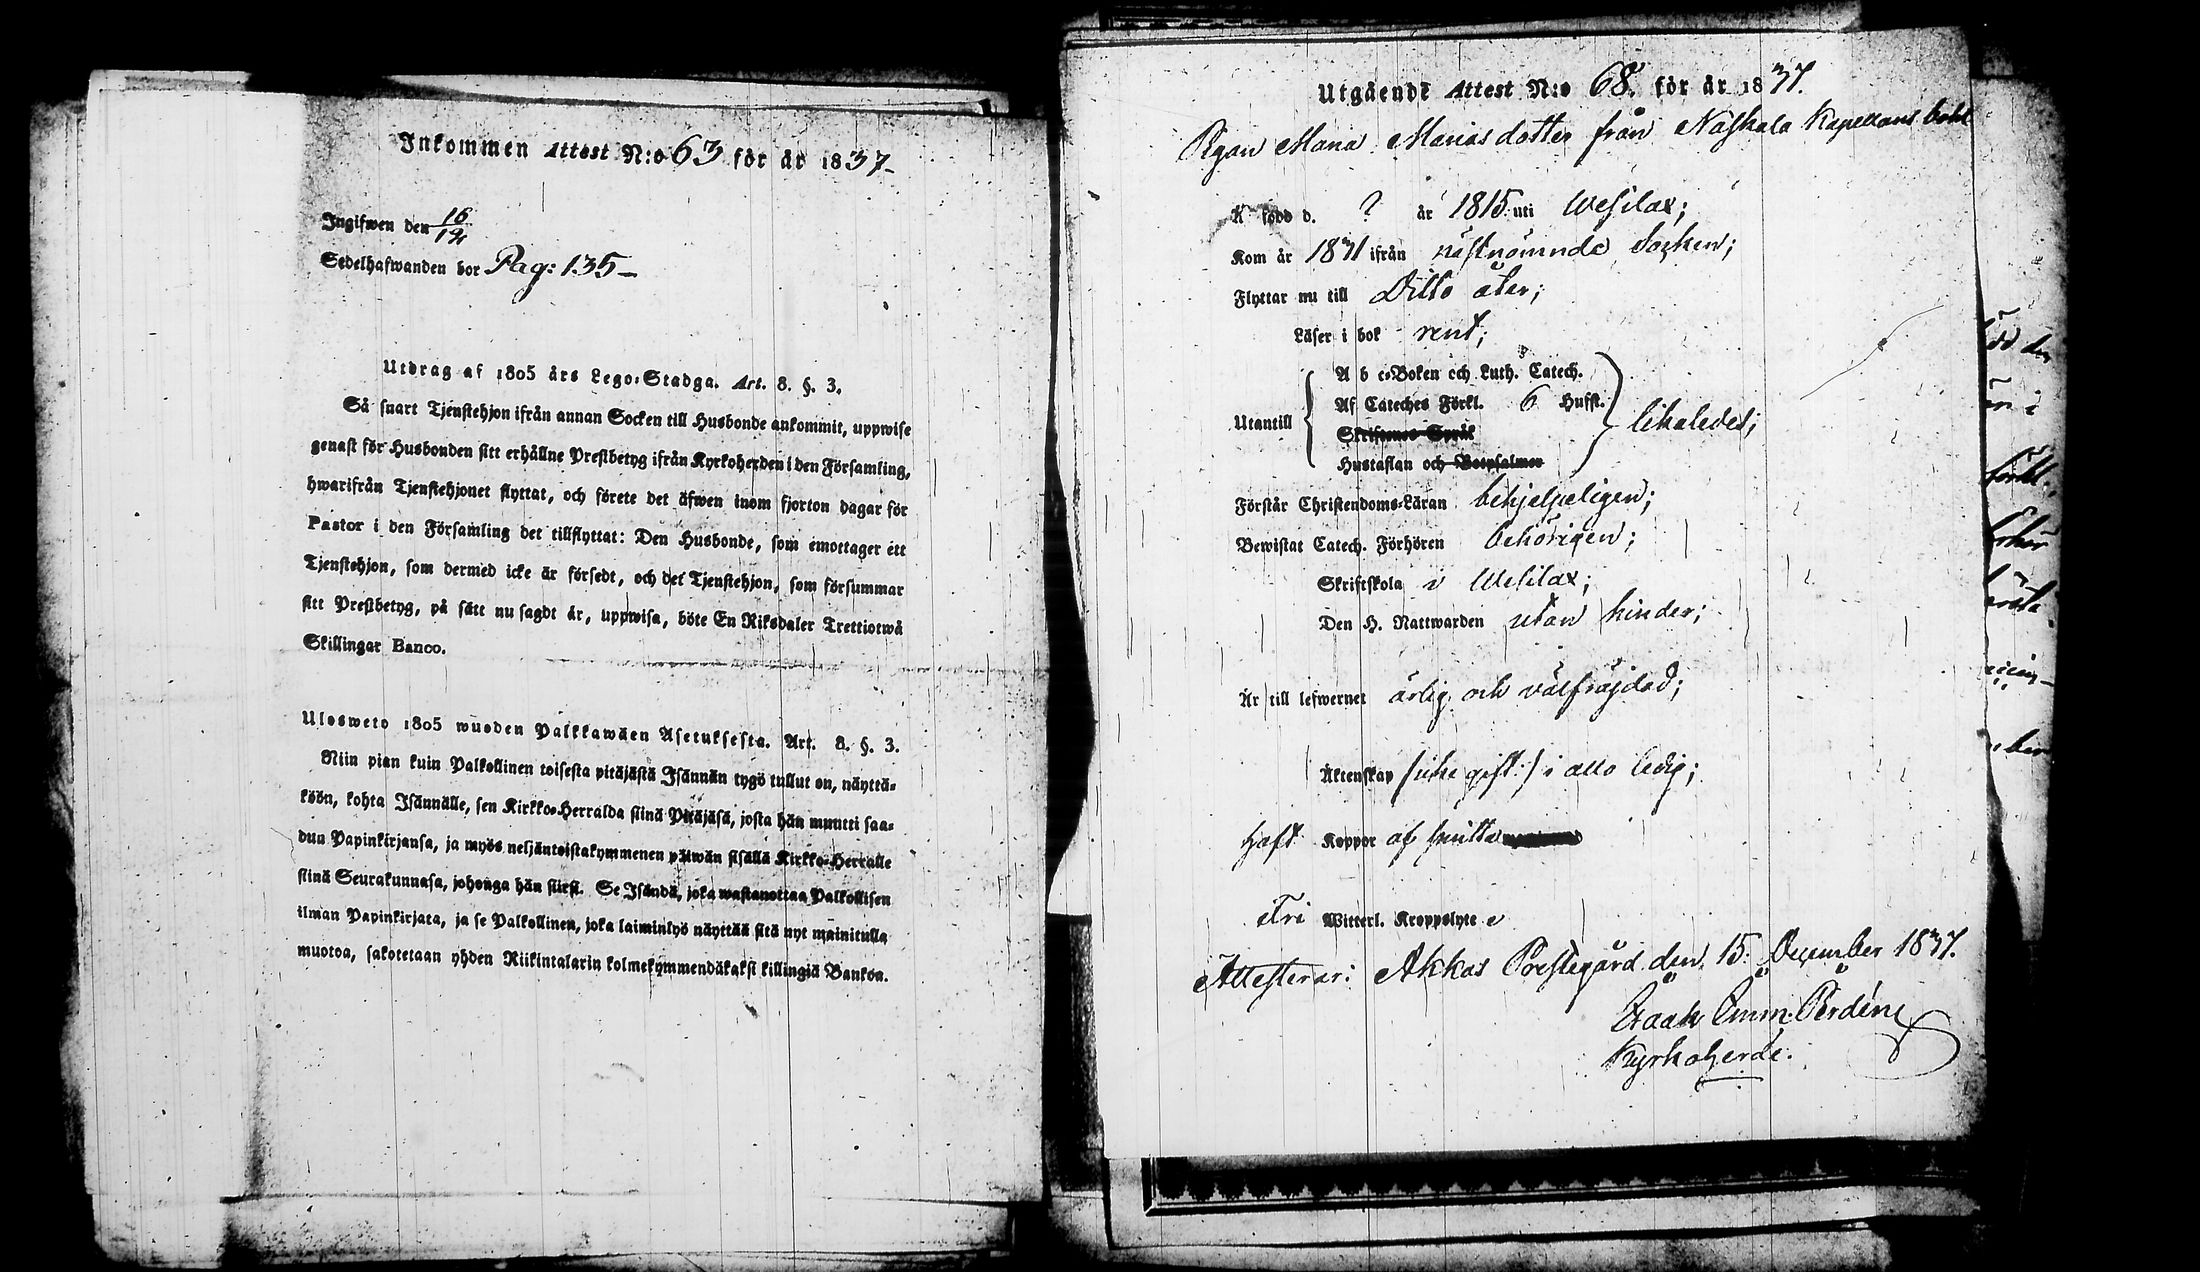 Inkommen Attest N:o 63 för år 1837-
Ingifwen den 16/12
Sedelhafwanden bor Pag: 135-
Utdrag af 1805 års Lego-Stadga. Art. 8. §. 3.
Så snart Tjenstehjon ifrån annan Socken till Husbonde ankommit, uppwise
genast för Husbonden sitt erhållne Prestbetyg ifrån Kyrkoherden i den Församling,
hwarifrån Tjenstehjonet flyttat, och förete det äfwen inom fjorton dagar för
Pastor i den Församling det tillflyttat: Den Husbonde, som emottager ett
Tjenstehjon, som dermed icke är försedt, och det Tjenstehjon, som försummar
sitt Prestbetyg, på sätt nu sagdt är, uppwisa, böte En Riksdaler Trettiotwå
Skillingar Banco.
Ulosweto 1805 wuoden Palkkawäen Asetuksesta. Art. 8. §. 3.
Niin pian kuin Palkollinen toisesta pitäjästä Isännän tygö tullut on, näyttä-
köön, kohta Isännälle, sen Kirkko-Herralda siinä Pitäjäsä, josta hän muutti saa-
dun Papinkirjansa, ja myös neljäntoistakymmenen päiwän sisällä Kirkko-Herralle
siinä Seurakunnasa, johonga hän siirsi. Se Isändä, joka wastanottaa Palkollisen
ilman Papinkirjata, ja se Palkollinen, joka laiminlyö näyttää sitä nyt mainitulla
muotoa, sakotetaan yhden Riikintalarin kolmekymmendäkaksi killingiä Bankoa.
Utgående Attest N:o 68. för år 1837.
Pigan Maria Mariasdotter från Kapellans bohl
Ä född d. ? år 1815 uti Wesilax;
Kom år 1831 ifrån nästnämnde Socken;
Flyttar nu till Ditto åter;
Läser i bok rent;
A b c-Boken och Luth. Catech.
Af Cateches Förkl. 6 Hufst.
Utantill likaledes;
Skriftenes Språk
Hustaflan och Botpsalmer
Förstår Christendoms-Läran behjelpeligen;
Bewistat Catech. Förhören behörigen;
Skriftskola i Wesilax;
Den H. Nattwarden utan hinder;
Är till lefwernet ärlig och välfräjdad;
Äktenskap /icke gift:/ i allo ledig;
Haft Koppor af smitta
Fri Witterl. Kroppslyte
Attesterar: Akkas Prestegård den 15. December 1837.
Isaak Emm: Perdén
Kyrkoherde.